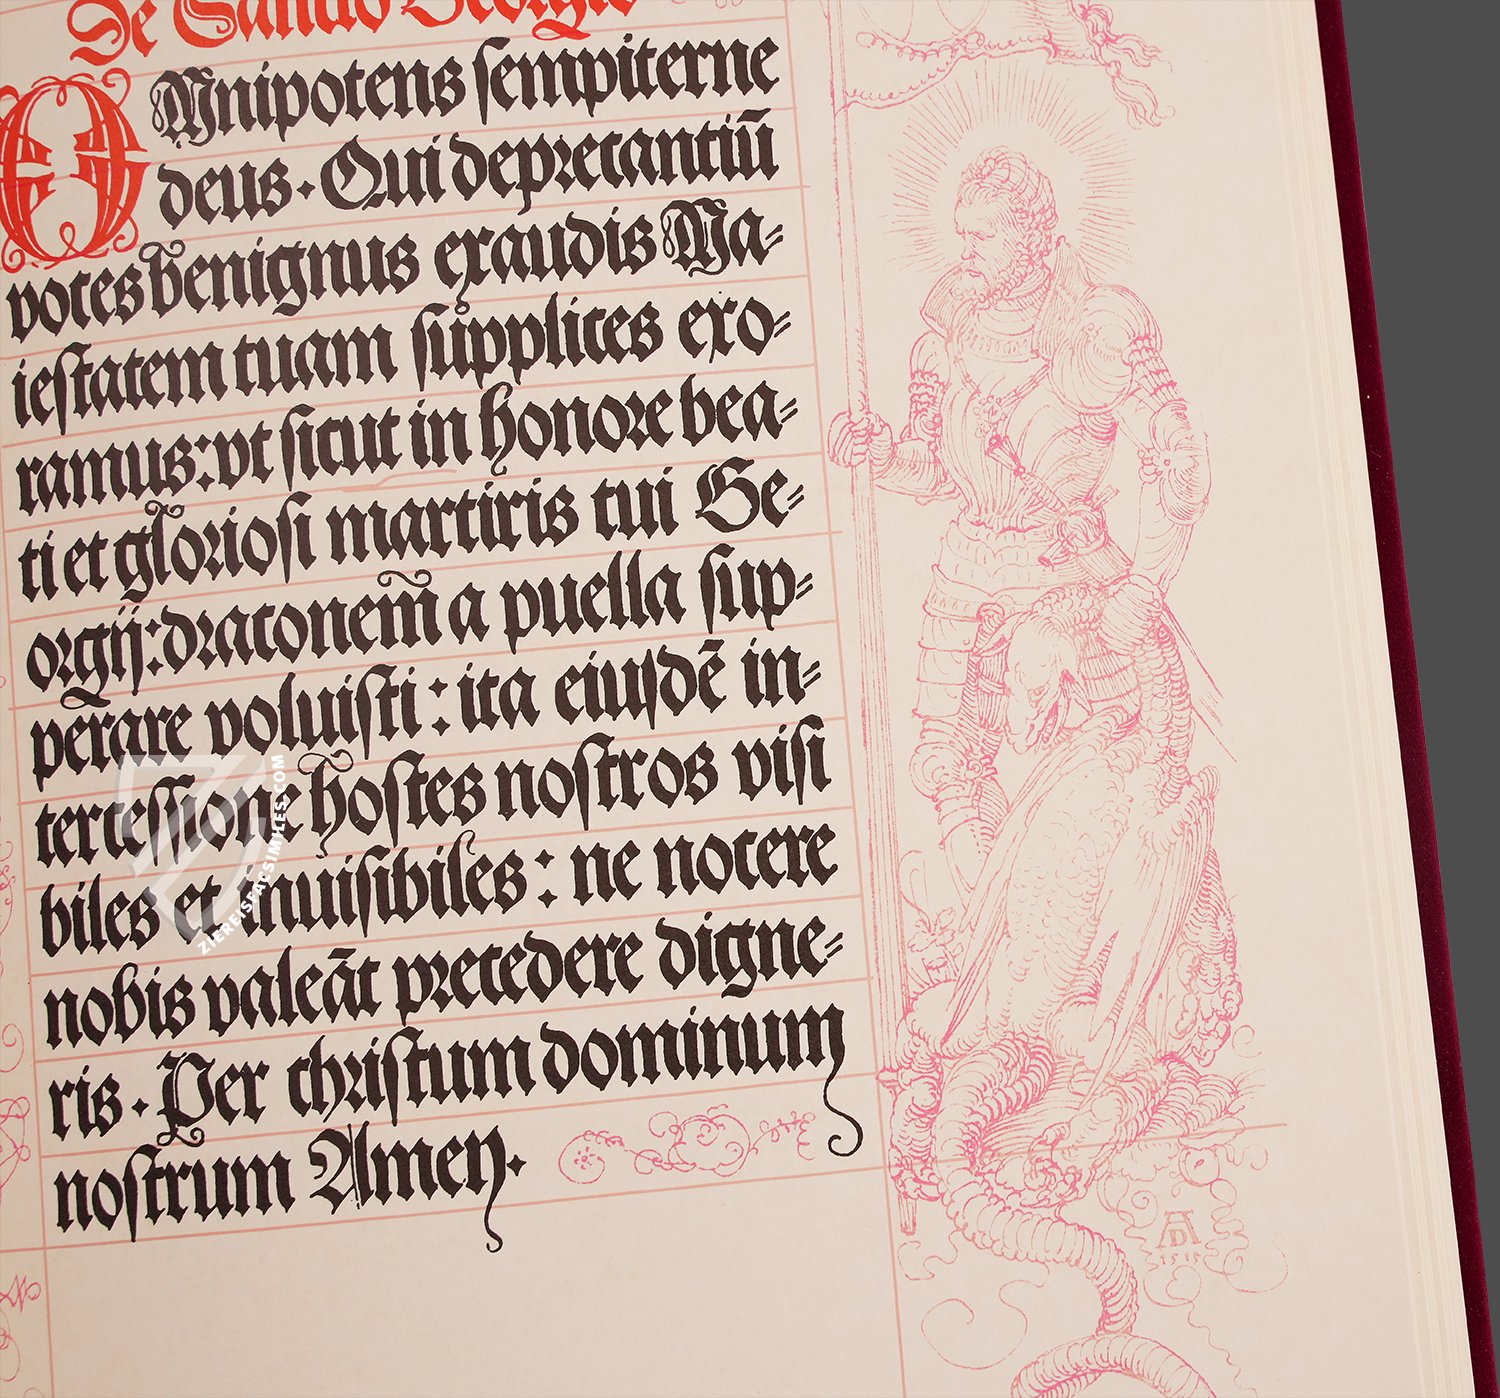 De Sancto Georgio
OMnipotens sempiterne
deus. Qui deprecantiū
voces benignus exaudis Ma⸗
iestatem tuam supplices exo⸗
ramus: vt sicut in honore bea⸗
ti et gloriosi martiris tui Ge⸗
orgij: draconem̃ a puella sup⸗
perare voluisti: ita eiusdē in⸗
tercessione hostes nostros visi
biles et inuisibiles: ne nocere
nobis valeāt precedere digne⸗
ris. Per christum dominum
nostrum Amen.
AD
1515
ZIEREISFACSIMILES.COM